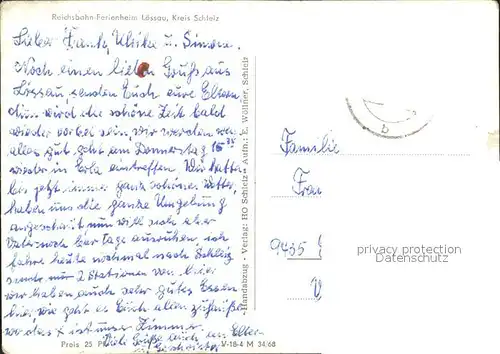 Reichsbahn-Ferienheim Lössau, Kreis Schleiz
Lieber Frank, Ulrike u. Simone.
Noch einen lieben Gruß aus
Lössau, senden Euch eure Eltern,
nun wird die schöne Zeit bald
wieder vorbei sein, wir werden wenn
alles gut geht am Donnerstag 16
wieder in Erla eintreffen. Wir hatten
bis jetzt immer ganz schönes Wetter,
haben uns die ganze Umgebung
angeschaut nun will sich aber
Vater noch paar Tage ausruhen, ich
fahre heute nochmal nach Schleiz
sind nur 2 Stationen von hier
wir haben auch sehr gutes Essen
hier, wie geht es Euch allen zuhause
wo das x ist unser Zimmer.
Viele Grüße auch an Elter
u. Geschwister
Preis 25 P
V-18-4 M 34/68
Handabzug - Verlag: HO Schleiz Aufn.: E. Wöllner, Schleiz
b
Familie
Frau
9405
V
privacy protection
Datenschutz